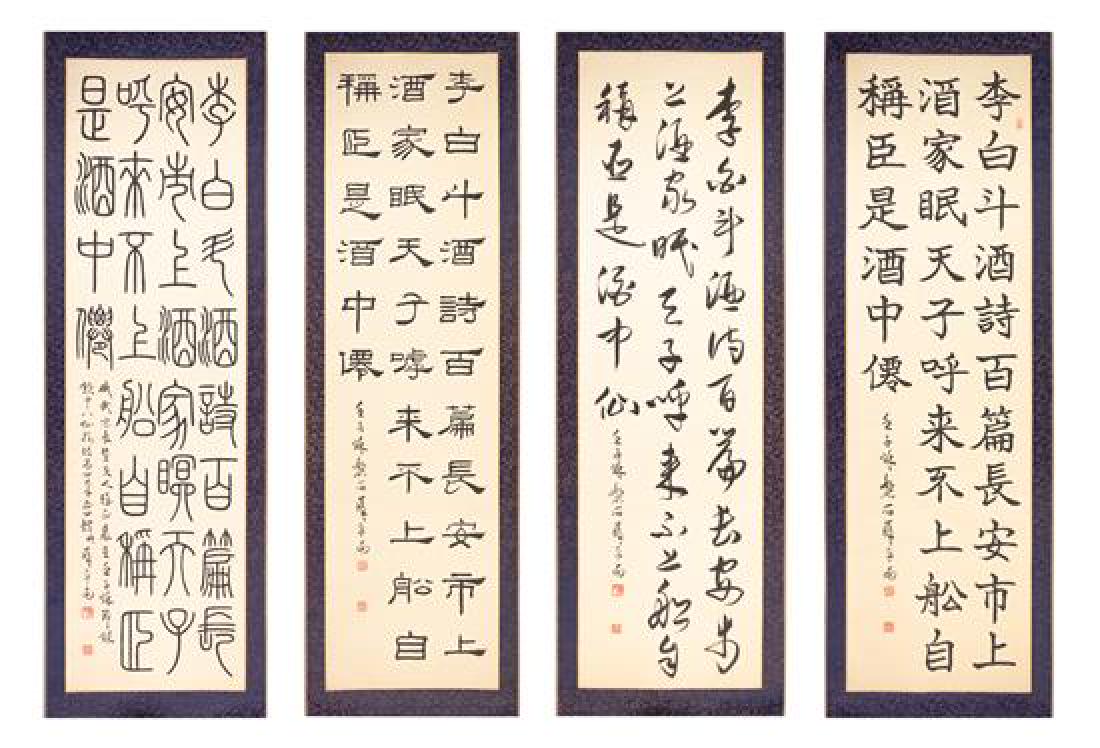 李白斗酒詩百篇長安市上
酒家眠天子呼来不上舩自
稱臣是酒中僊
李白斗酒詩百篇長安市
上酒家眠天子呼来不上船自
稱臣是酒中仙
李白斗酒詩百篇長安市上
酒家眠天子嘑来不上舩自
稱臣是酒中僊
李白斗酒詩百篇長
安市上酒家瞑天子
呼來不上船自稱臣
是酒中僊